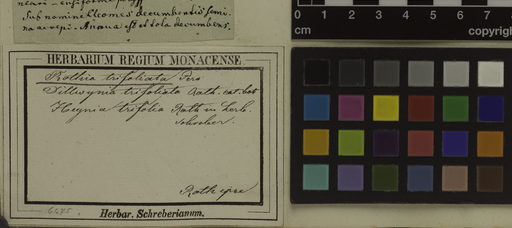 Sub nomine Cleomes decumbentis semi-
na accepi. Annua est et tota decumbens.
HERBARIUM REGIUM MONACENSE
Rothia trifoliata Pers
Dillwynia trifoliata Roth. cat. bot
Heynia trifolia Roth in herb.
Schreber.
Roth ipse
Herbar. Schreberianum.
0 1 2 3 4 5 6 7
cm
copyrig